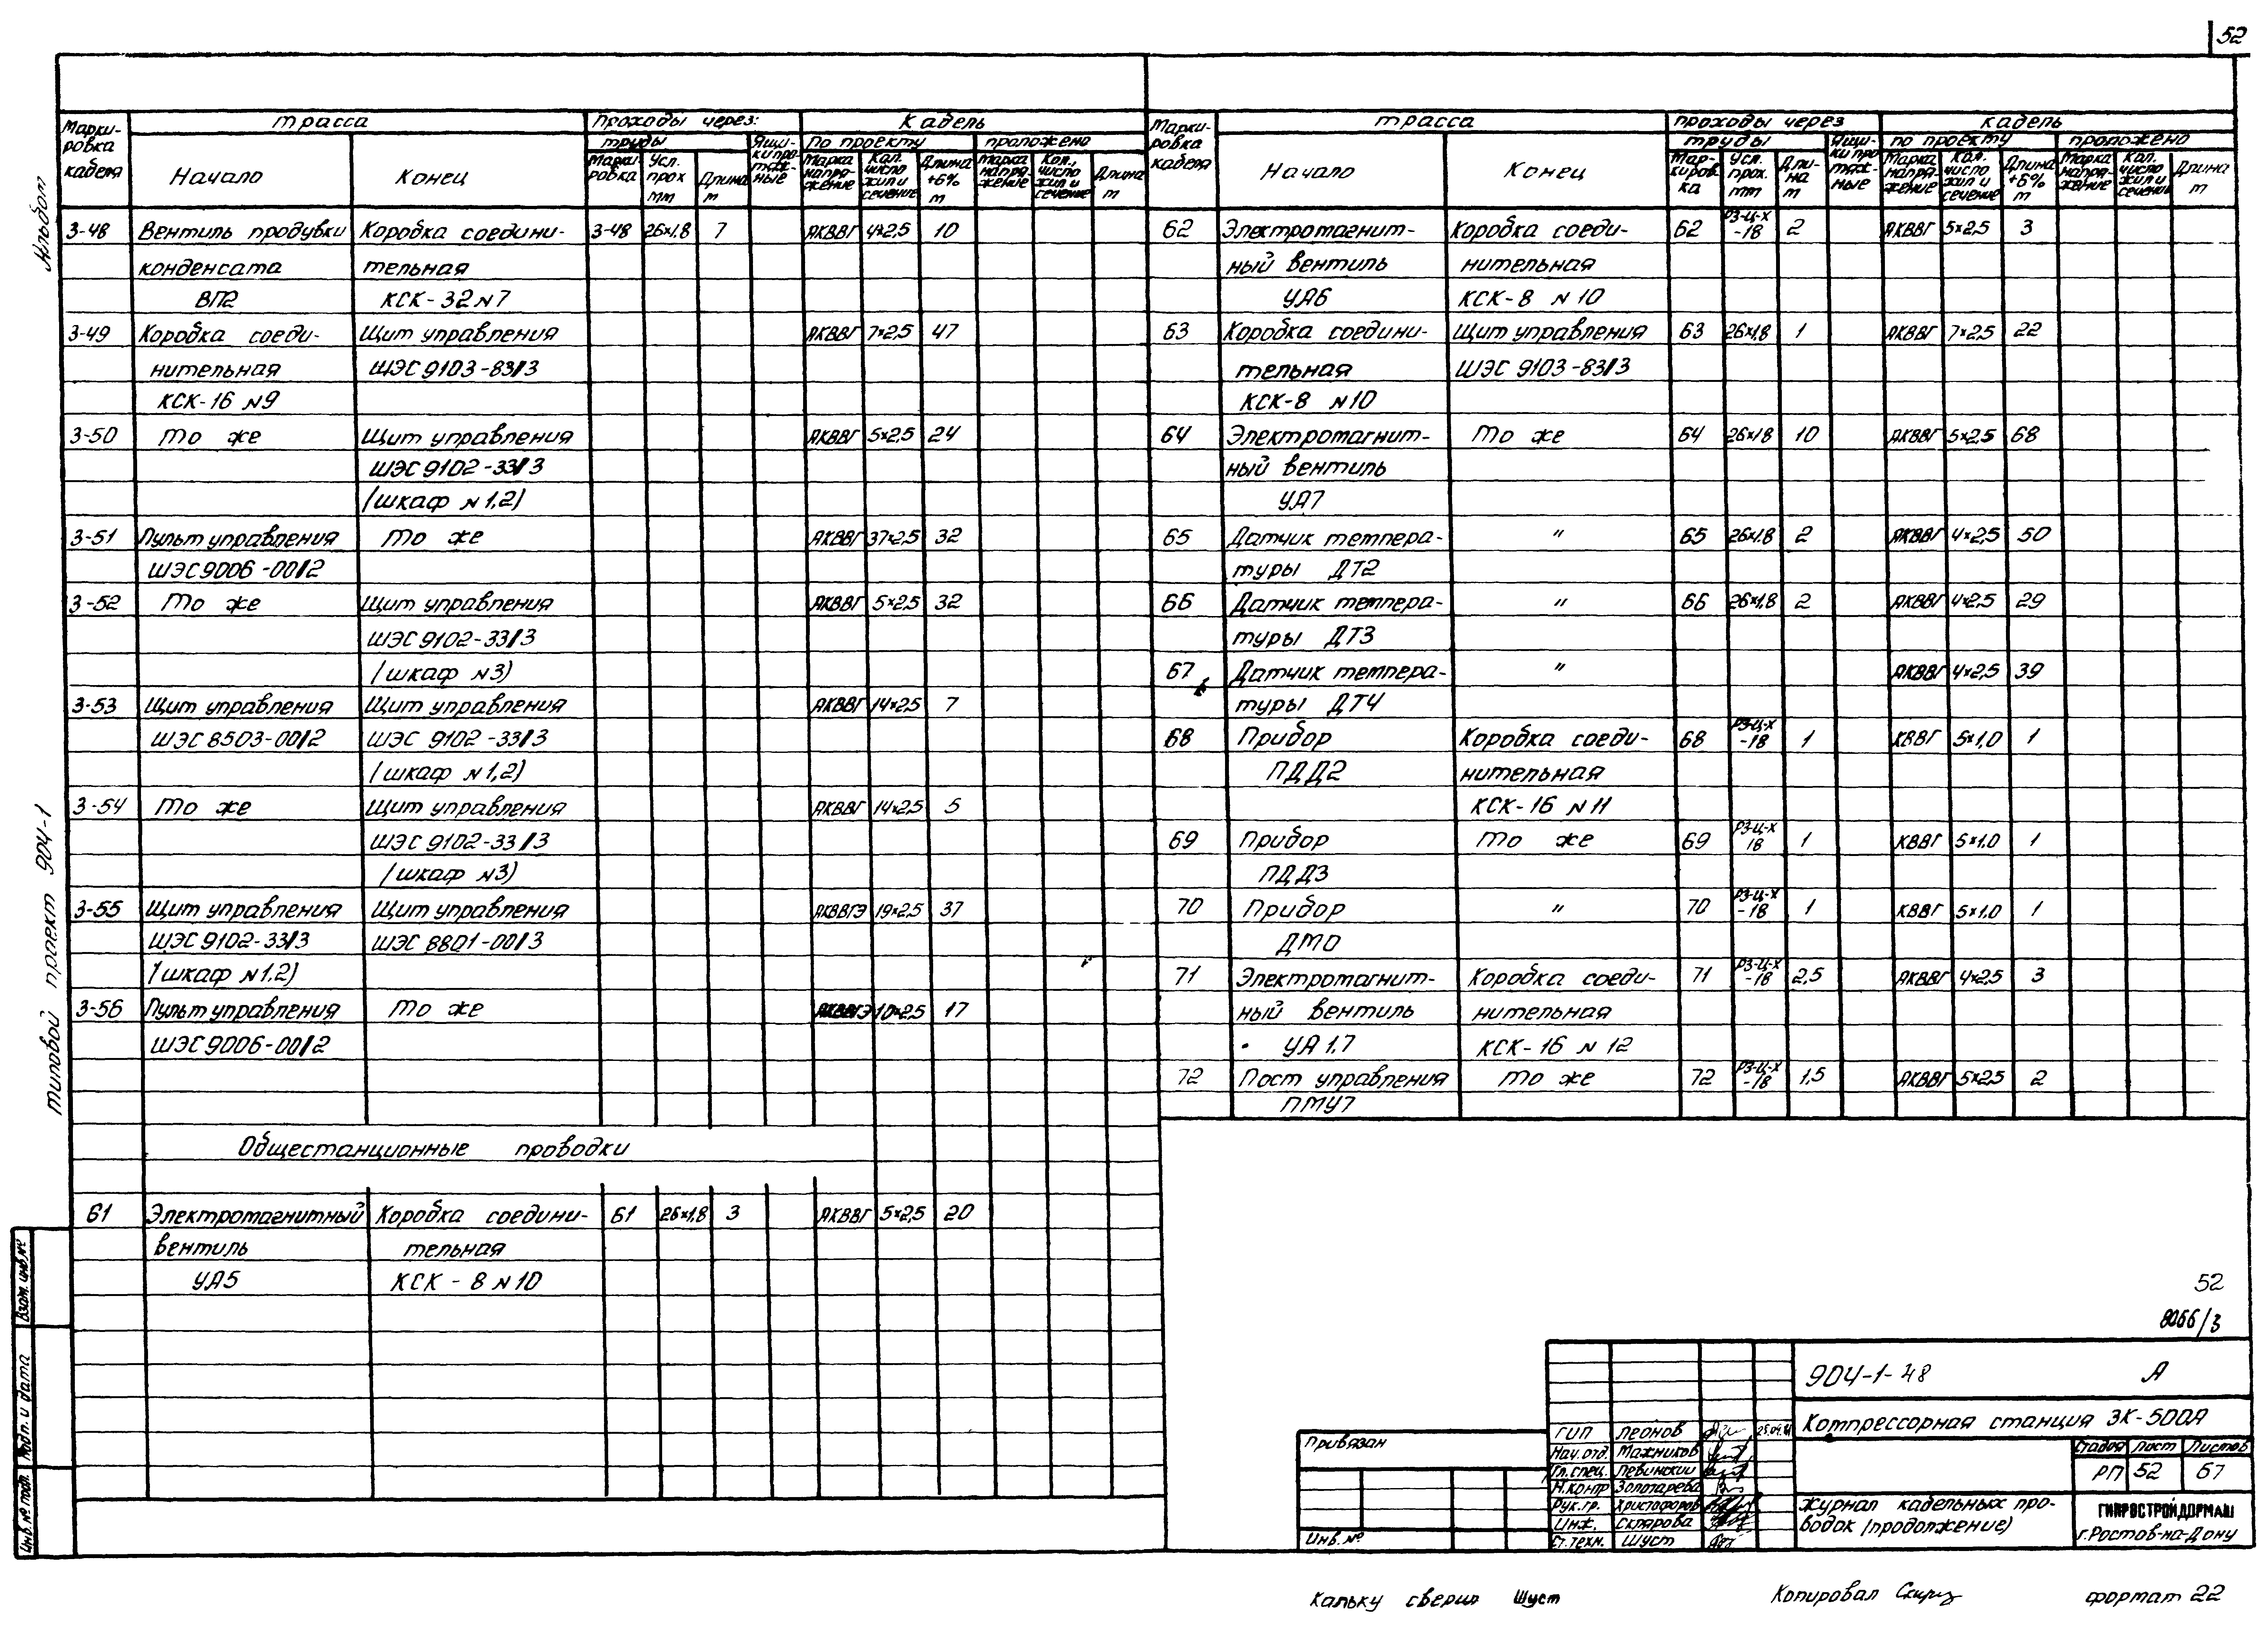 52
Альбом
Типовой проект 904-1
Марки-ровка кабеля | Трасса | Проходы через: | Кабель
трубы | Ящи-ки про-тяж-ные | По проекту | проложено
Начало | Конец | Марки-ровка | Усл. прох мм | Длина м | Марка напря-жение | Кол. число жил и сечение | Длина +6% м | Марка напря-жение | Кол., число жил и сечение | Длина м
3-48 | Вентиль продувки | Коробка соедини- | 3-48 | 26×1,8 | 7 | АКВВГ | 4×2,5 | 10
конденсата | тельная
ВП2 | КСК-32 №7
3-49 | Коробка соеди- | Щит управления | АКВВГ | 7×2,5 | 47
нительная | ШЭС 9103-83/3
КСК-16 №9
3-50 | То же | Щит управления | АКВВГ | 5×2,5 | 24
ШЭС 9102-33/3
(шкаф №1,2)
3-51 | Пульт управления | То же | АКВВГ | 37×2,5 | 32
ШЭС9006-00/2
3-52 | То же | Щит управления | АКВВГ | 5×2,5 | 32
ШЭС 9102-33/3
(шкаф №3)
3-53 | Щит управления | Щит управления | АКВВГ | 14×2,5 | 7
ШЭС 8503-00/2 | ШЭС 9102-33/3
(шкаф №1,2)
3-54 | То же | Щит управления | АКВВГ | 14×2,5 | 5
ШЭС 9102-33/3
(шкаф №3)
3-55 | Щит управления | Щит управления | АКВВГЭ | 19×2,5 | 37
ШЭС 9102-33/3 | ШЭС 8801-00/3
(шкаф №1,2)
3-56 | Пульт управления | То же | АКВВГЭ | 10×2,5 | 17
ШЭС9006-00/2
Общестанционные проводки
61 | Электромагнитный | Коробка соедини- | 61 | 26×1,8 | 3 | АКВВГ | 5×2,5 | 20
вентиль | тельная
УА5 | КСК-8 №10
Марки-ровка кабеля | Трасса | проходы через | кабель
трубы | Ящи-ки про тяж-ные | по проекту | проложено
Начало | Конец | Мар-киров-ка | Усл. прох. мм | Дли-на м | Марка напря-жение | Кол. число жил и сечение | Длина +6% м | Марка напря-жение | Кол. число жил и сечение | Длина м
62 | Электромагнит- | Коробка соеди- | 62 | РЗ-Ц-Х -18 | 2 | АКВВГ | 5×2,5 | 3
ный вентиль | нительная
УА6 | КСК-8 №10
63 | Коробка соедини- | Щит управления | 63 | 26×1,8 | 1 | АКВВГ | 7×2,5 | 22
тельная | ШЭС 9103-83/3
КСК-8 №10
64 | Электромагнит- | То же | 64 | 26×1,8 | 10 | АКВВГ | 5×2,5 | 68
ный вентиль
УА7
65 | Датчик темпера- | " | 65 | 26×1,8 | 2 | АКВВГ | 4×2,5 | 50
туры ДТ2
66 | Датчик темпера- | " | 66 | 26×1,8 | 2 | АКВВГ | 4×2,5 | 29
туры ДТ3
67 | Датчик темпера- | " | АКВВГ | 4×2,5 | 39
туры ДТ4
68 | Прибор | Коробка соеди- | 68 | РЗ-Ц-Х -18 | 1 | КВВГ | 5×1,0 | 1
ПДД2 | нительная
КСК-16 №11
69 | Прибор | То же | 69 | РЗ-Ц-Х 18 | 1 | КВВГ | 5×1,0 | 1
ПДД3
70 | Прибор | " | 70 | РЗ-Ц-Х -18 | 1 | КВВГ | 5×1,0 | 1
ДМО
71 | Электромагнит- | Коробка соеди- | 71 | РЗ-Ц-Х -18 | 2,5 | АКВВГ | 4×2,5 | 3
ный вентиль | нительная
УА 1.7 | КСК-16 №12
72 | Пост управления | То же | 72 | РЗ-Ц-Х -18 | 1,5 | АКВВГ | 5×2,5 | 2
ПМУ7
52
8066/3
904-1-48 А
Компрессорная станция 3К-500А
Стадия | Лист | Листов
РП | 52 | 67
Журнал кабельных про-
водок (продолжение)
ГИПРОСТРОЙДОРМАШ
г.Ростов-на-Дону
ГИП | Леонов
Нач. отд. | Мажников
Гл. спец. | Левинский
Н.контр | Золотарева
Рук. гр. | Христофоров
Инж. | Склярова
Ст. техн. | Шуст
Привязан
Инв. №
Взам. инв. №
Подп. и дата
Инв. № подл.
Кальку сверил Шуст
Копировал
формат 22